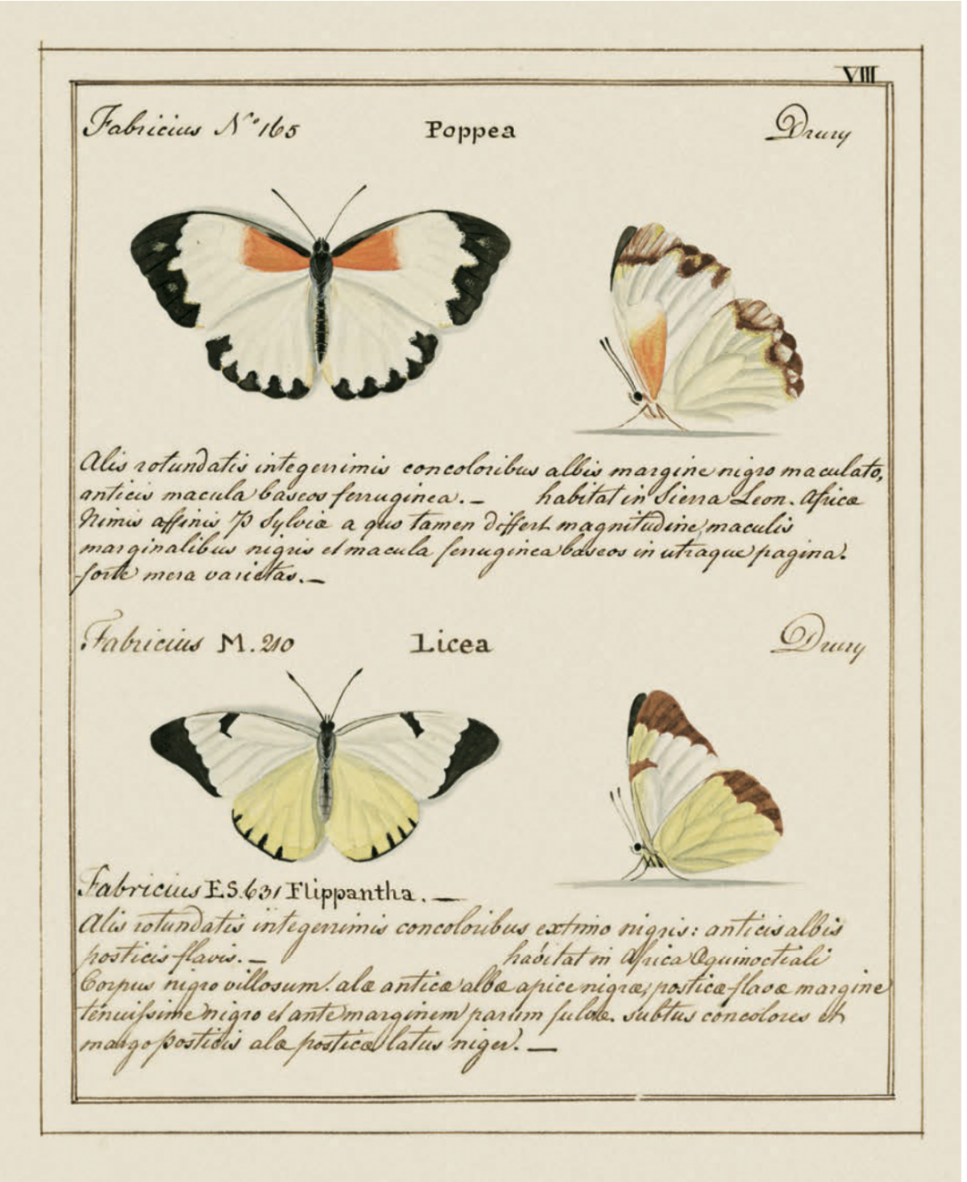 VIII
Fabricius No. 165 Poppea Drury
Alis rotundatis integerrimis concoloribus albis margine nigro maculato,
anticis macula baseos ferruginea. — habitat in Sierra Leon. Africæ
Nimis affinis P Sylviæ a quo tamen differt magnitudine, maculis
marginalibus nigris et macula ferruginea baseos in utraque pagina.
forte mera varietas. —
Fabricius M. 210 Licea Drury
Fabricius ES. 631 Flippantha. —
Alis rotundatis integerrimis concoloribus extimo nigris: anticis albis
posticis flavis. — habitat in Africa Æquinoctiali
Corpus nigro villosum. alæ anticæ albæ apice nigræ, posticæ flavæ margine
tenuissime nigro et ante marginem parum fulvæ. subtus concolores et
margo posticis alæ posticæ latus niger. —